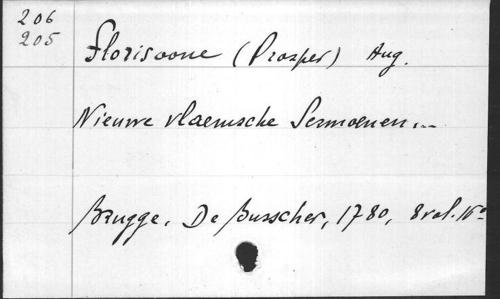 206
205
Florisoone (Prosper) Aug.
Nieuwe vlaemsche Sermoenen...
Brugge, De Busscher, 1780, 8 vol. 16°